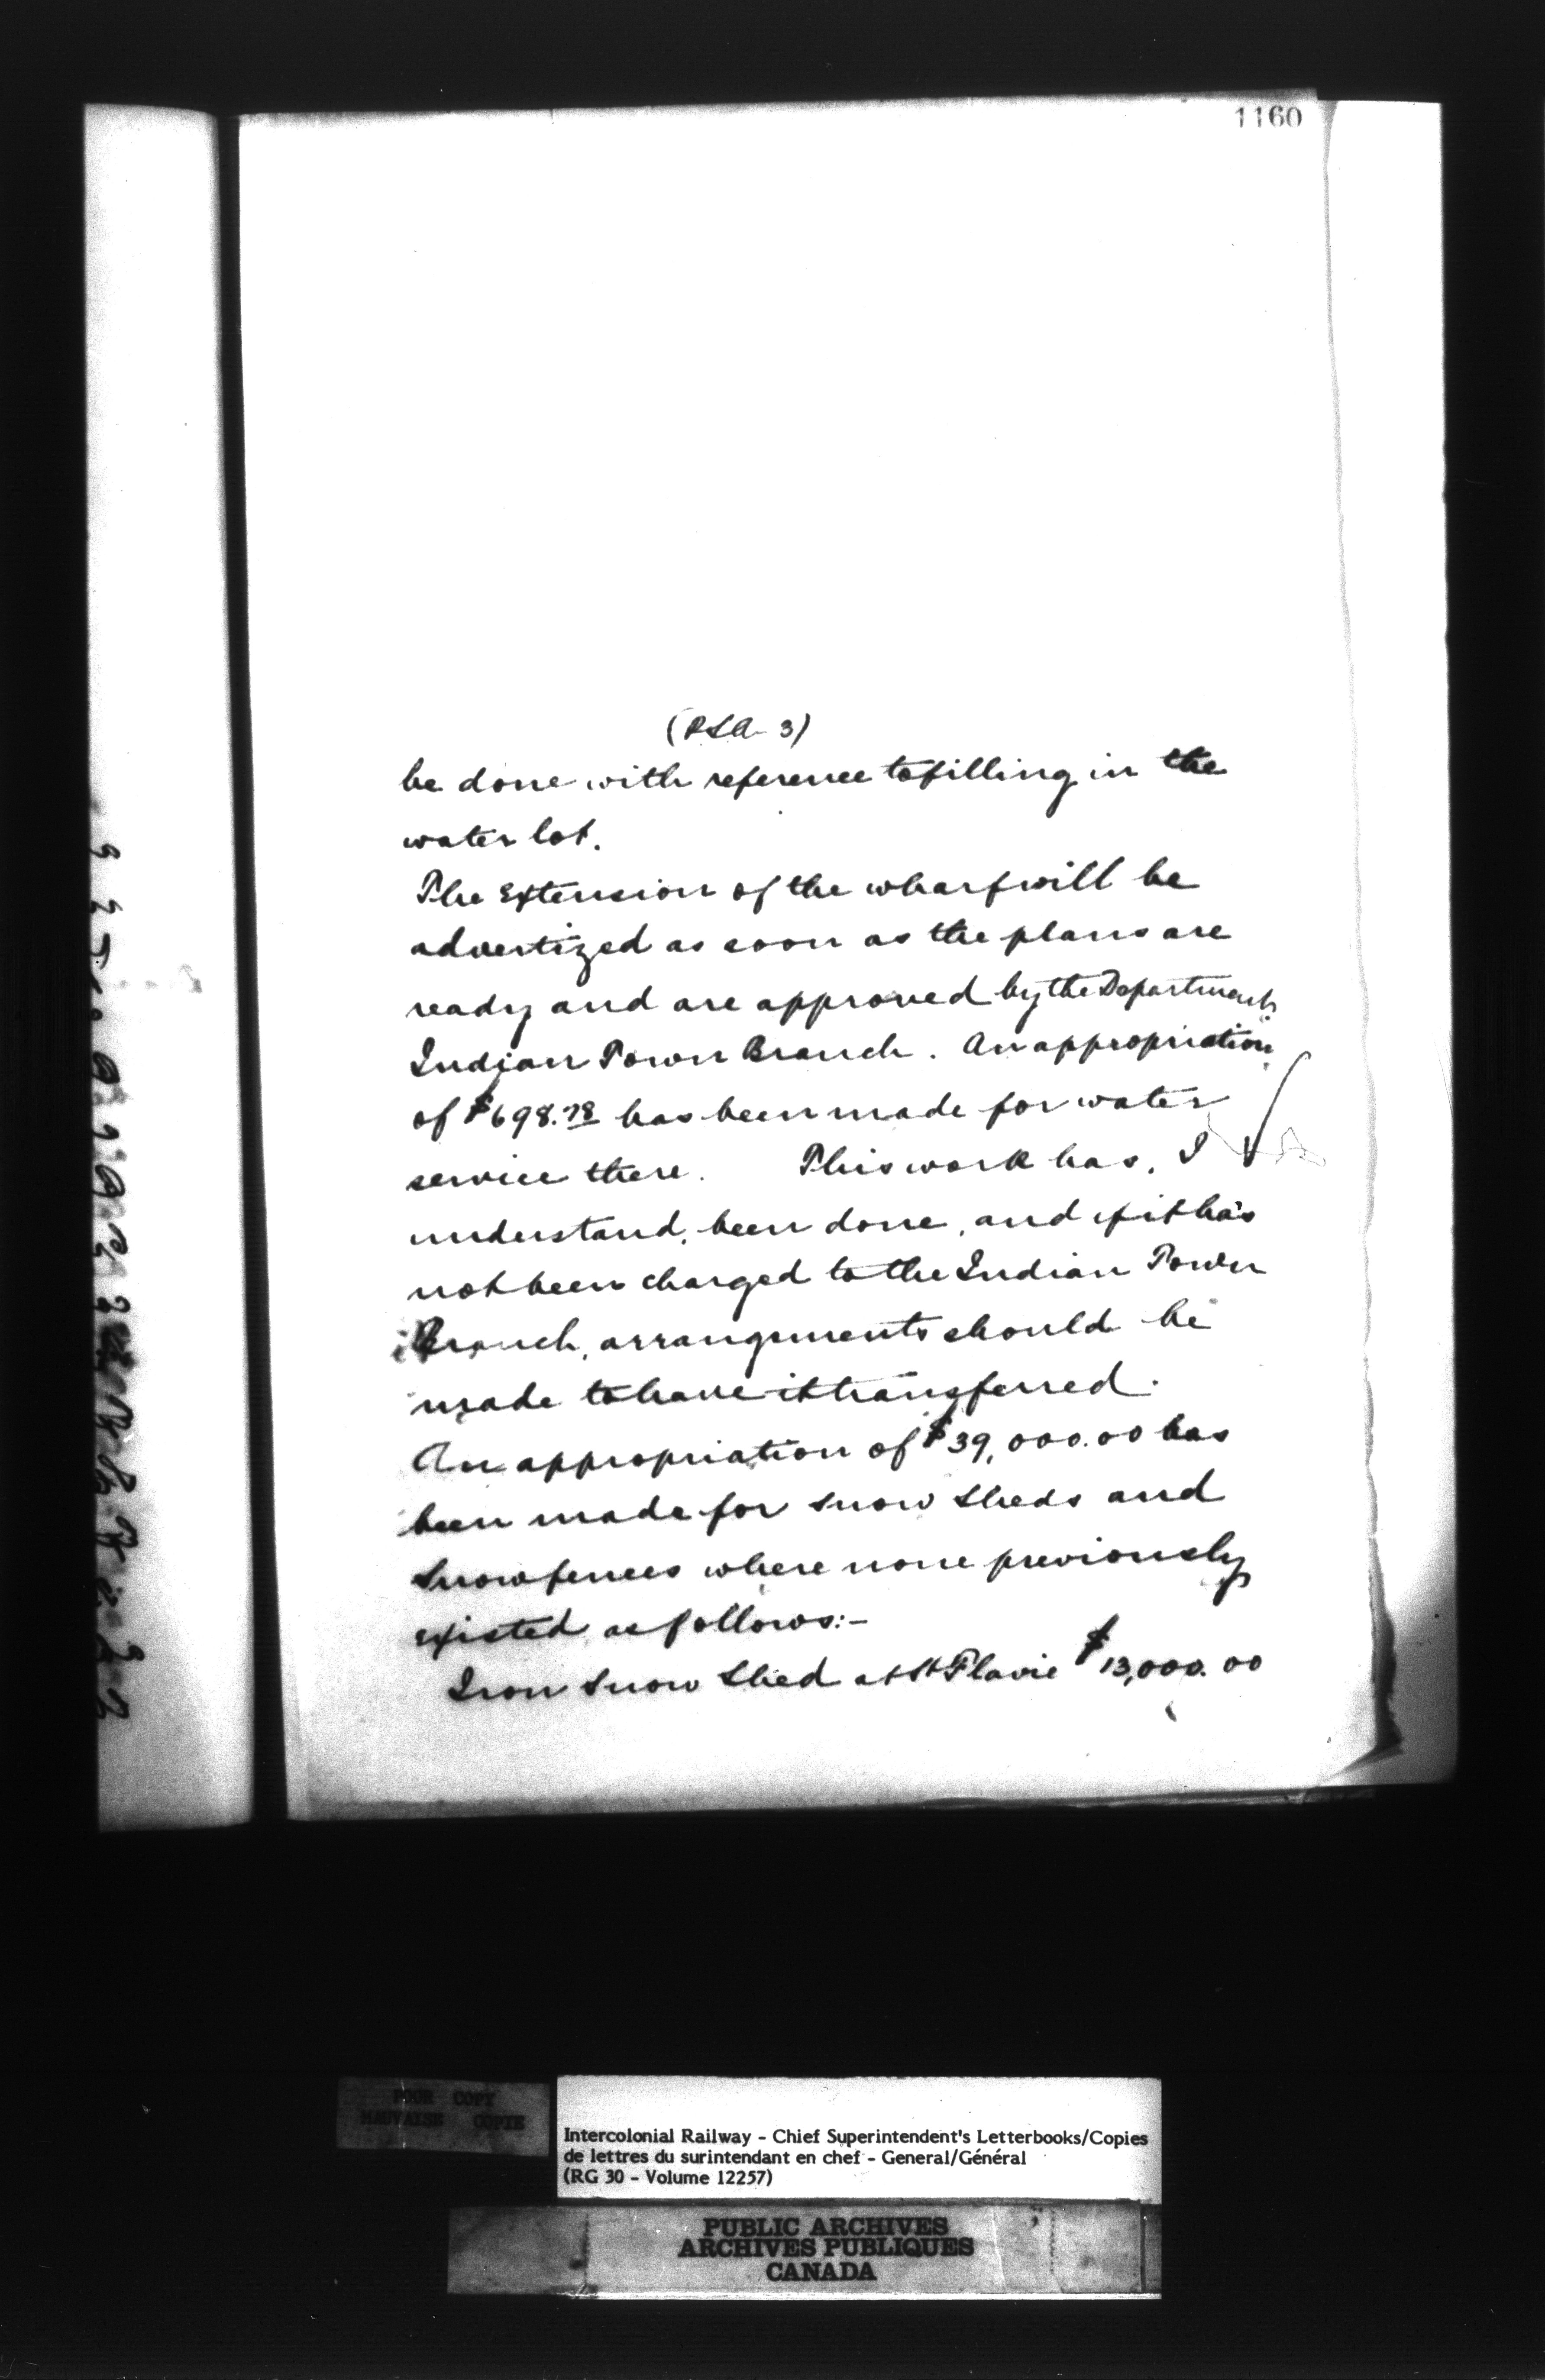 1160
(PSA- 3)
be done with reference to filling in the
water lot.
The Extension of the wharf will be
advertized as soon as the plans are
ready and are approved by the Department.
Indian Town Branch. An appropriation
of $698.78 has been made for water
service there. This work has, I
understand, been done, and if it has
not been charged to the Indian Town
Branch, arrangements should be
made to have it transferred.
An appropriation of $39,000.00 has
been made for Snow Sheds and
Snow fences where none previously
existed as follows:-
Iron Snow Shed at St Flavie $13,000.00
POOR COPY
MAUVAISE COPIE
Intercolonial Railway - Chief Superintendent's Letterbooks/Copies
de lettres du surintendant en chef - General/Général
(RG 30 - Volume 12257)
PUBLIC ARCHIVES
ARCHIVES PUBLIQUES
CANADA